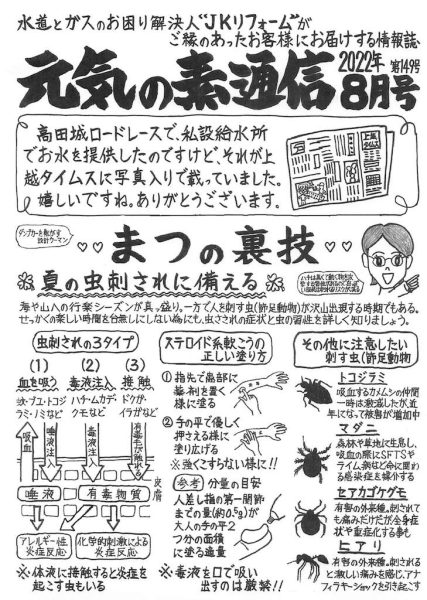 水道とガスのお困り解決人“JKリフォーム”が
ご縁のあったお客様にお届けする情報誌
元気の素通信
2022年
第149号
8月号
高田城ロードレースで、私設給水所
でお水を提供したのですけど、それが上
越タイムスに写真入りで載っていました。
嬉しいですね。ありがとうございます。
ダンプカーを転がす
設計ウーマン
まつの裏技
夏の虫刺されに備える
海や山への行楽シーズンが真っ盛り。一方で人を刺す虫(節足動物)が沢山出現する時期でもある。
せっかくの楽しい時間を台無しにしない為にも、虫さされの症状と虫の習性を詳しく知りましょう。
虫刺されの3タイプ
(1) (2) (3)
血を吸う 毒液注入 接触
蚊・ブユ・トコジ
ラミ・ノミなど
ハチ・ムカデ
クモなど
ドクガ・
イラガなど
(1) (2) (3)
吸血
唾液注入
毒液注入
有毒毛が触れる
皮膚
唾液
有毒物質
アレルギー性
炎症反応
化学的刺激による
炎症反応
※体液に接触すると炎症を
起こす虫もいる
ステロイド系軟こうの
正しい塗り方
①指先で患部に
薬剤を置く
様に塗る
②手の平で優しく
押さえる様に
塗り広げる
※強くこすらない様に!!
参考 分量の目安
人差し指の第一関節
までの量(約0.5g)が
大人の手の平2
つ分の面積
に塗る適量
※毒液を口で吸い
出すのは厳禁!!
その他に注意したい
刺す虫(節足動物
トコジラミ
吸血するカメムシの仲間
一時は激減したが近
年になって被害が増加中
マダニ
森林や草地に生息し、
吸血の際にSFTSや
ライム病など命に関わ
る感染症を媒介する
セアカゴケグモ
有毒の外来種。刺されて
も痛みだけだが全身症
状や重症化する事も
ヒアリ
有毒の外来種。刺される
と激しい痛みを感じ、アナ
フィラキーショックを引き起こす